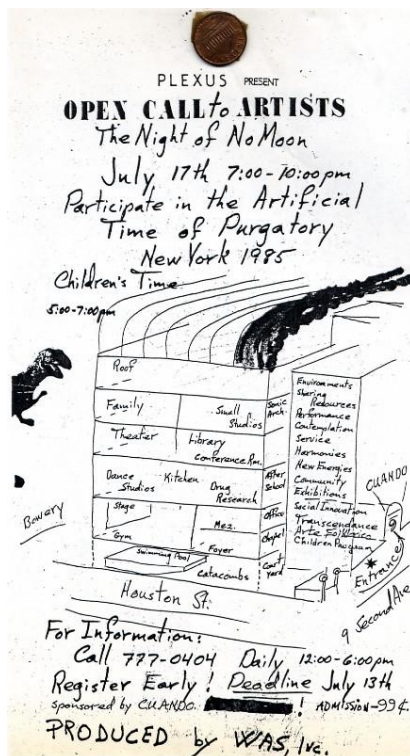 PLEXUS PRESENT
OPEN CALL to ARTISTS
The Night of No Moon
July 17th 7:00-10:00pm
Participate in the Artificial
Time of Purgatory
New York 1985
Children's Time
5:00-7:00pm
Roof
Family
Small Studios
Sonic Arch.
Theater
Library
Conference Rm.
Dance Studios
Kitchen
Drug Research
After School
Stage
Mez.
Office
Gym
Foyer
Chapel
Swimming Pool
catacombs
Court yard
Environments
Sharing
Resources
Performance
Contemplation
Service
Harmonies
New Energies
Community
Exhibitions
Social Innovation
Transcendance
Arte Folklorico
Children Program
CUANDO
Entrance
Bowery
Houston St.
9 Second Ave
For Information:
Call 777-0404 Daily 12:00-6:00pm
Register Early! Deadline July 13th
sponsored by CUANDO. ! ADMISSION-99¢.
PRODUCED by WAS Inc.